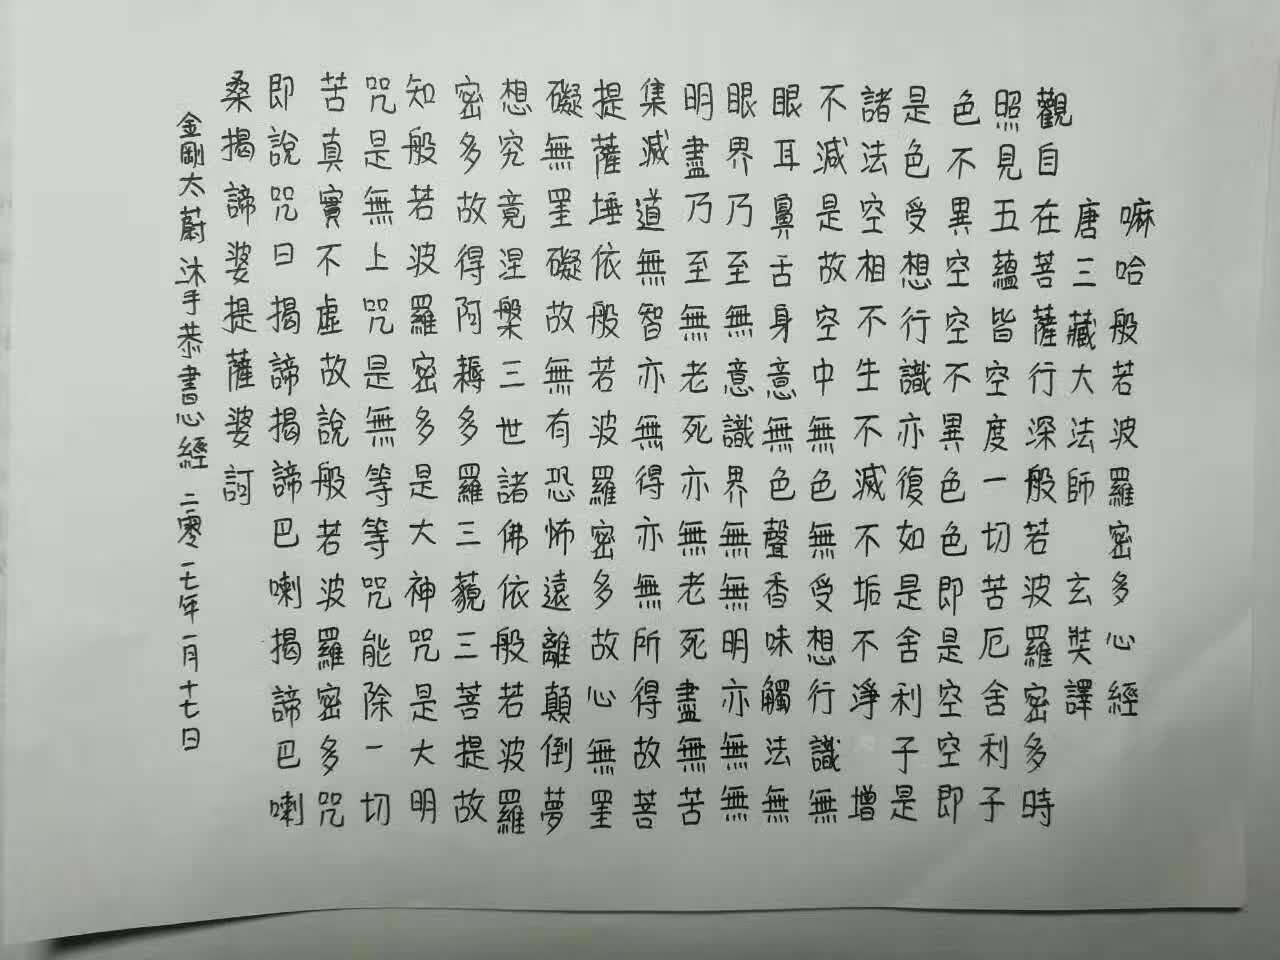 嘛哈般若波羅密多心經
唐三藏大法師 玄奘譯
觀自在菩薩行深般若波羅密多時
照見五蘊皆空度一切苦厄舍利子
色不異空空不異色色即是空空即
是色受想行識亦復如是舍利子是
諸法空相不生不滅不垢不淨 增
不減是故空中無色無受想行識無
眼耳鼻舌身意無色聲香味觸法無
眼界乃至無意識界無無明亦無無
明盡乃至無老死亦無老死盡無苦
集滅道無智亦無得亦無所得故菩
提薩埵依般若波羅密多故心無罣
礙無罣礙故無有恐怖遠離顛倒夢
想究竟涅槃三世諸佛依般若波羅
密多故得阿耨多羅三藐三菩提故
知般若波羅密多是大神咒是大明
咒是無上咒是無等等咒能除一切
苦真實不虛故說般若波羅密多咒
即說咒曰揭諦揭諦巴喇揭諦巴喇
桑揭諦婆提薩婆訶
金剛太蔚沐手恭書心經 二零一七年一月十七日